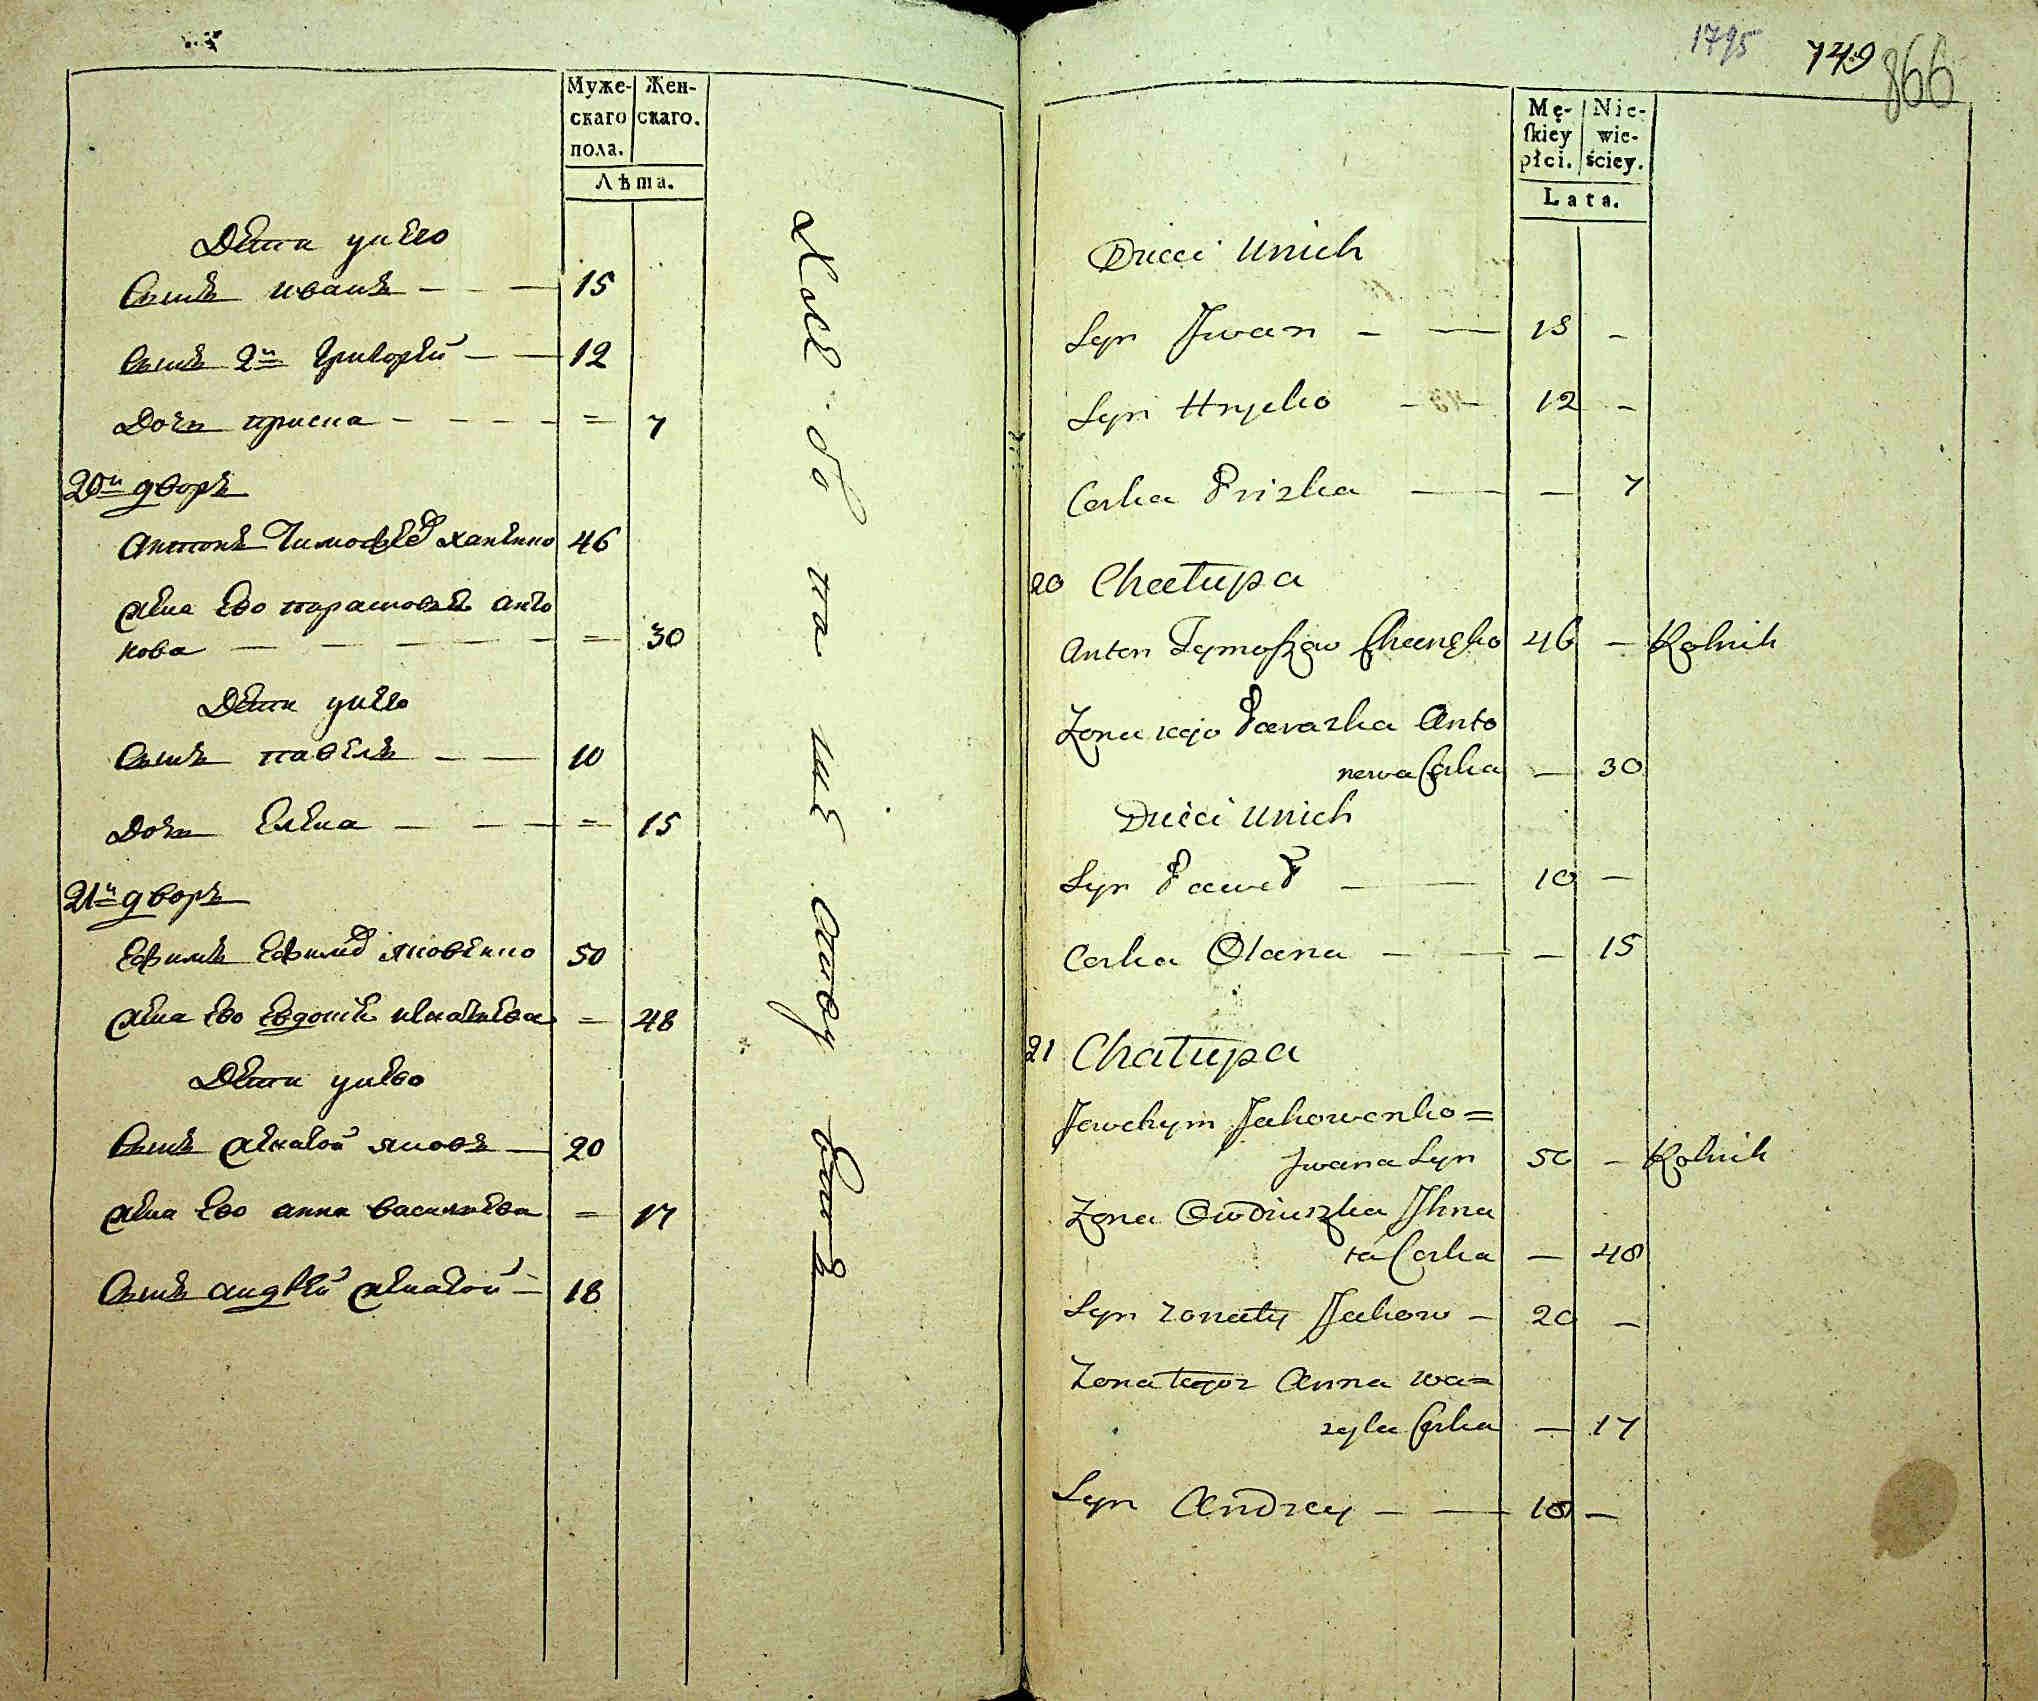 Муже-
скаго
пола.
Жен-
скаго.
Лѣта.
Дети у него
Сынъ иванъ - - - 15
Сынъ 2й Григорей - - 12
Дочь приска - - - - = 7
20й дворъ
Антонъ Тимофеев ханенко 46
Жена Ево парасковья анто
нова - - - - - - = 30
Дети у него
Сынъ павелъ - - 10
Дочь Елена - - - = 15
21й дворъ
Ефимъ Ефимов яковенко 50
Жена Ево Евдокия = 48
Дети у нево
Сынъ яковъ - 20
Жена Ево анна васильева = 17
Сынъ андрей - 18
1795 749 866
Mę-
ſkiey
płci.
Nie-
wie-
ściey.
Lata.
Dzieci Unich
Syn Jwan - - 15 -
Syn Hryćko - - 12 -
Corka Prizka - - - 7
20 Chałupa
Anton Tymofzow Chanęko 46 - Rolnik
Zona iego Parazka Anto
nowa Corka - 30
Dzieci Unich
Syn Paweł - - 10 -
Corka Olana - - - 15
21 Chałupa
Jewchym Jakowenko =
Jwana Syn 50 - Rolnik
Zona Owdiuszka Jhna
ta Corka - 48
Syn Jakow - 20 -
Zona tegoz Anna Wa=
zyla Corka - 17
Syn Andrey - - 18 -